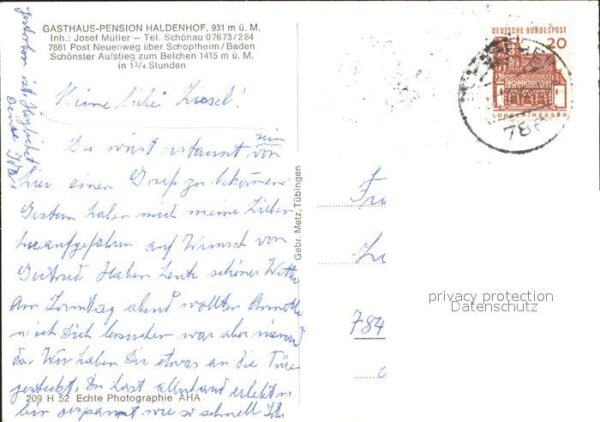 GASTHAUS-PENSION HALDENHOF, 931 m ü. M.
Inh.: Josef Müller – Tel. Schönau 07673/284
7861 Post Neuenweg über Schopfheim/Baden
Schönster Aufstieg zum Belchen 1415 m ü. M.
in 1¾ Stunden
Meine liebe
Du wirst erstaunt sein
von
hier einen Gruß zu bekommen
Gestern haben mich meine Lieben
heraufgefahren auf Wunsch von
Gertrud. Haben heute schönes Wetter
Am Sonntag abend wollten
u ich Dich besuchen war aber niemand
da. Wir haben Dir etwas an die Türe
gesteckt. Du hast allerhand erlebt
bin gespannt wie so schnell
209 H 52 Echte Photographie AHA
Gebr. Metz, Tübingen
DEUTSCHE BUNDESPOST
20
LORSCH/HESSEN
78
Fr
784
privacy protection
Datenschutz